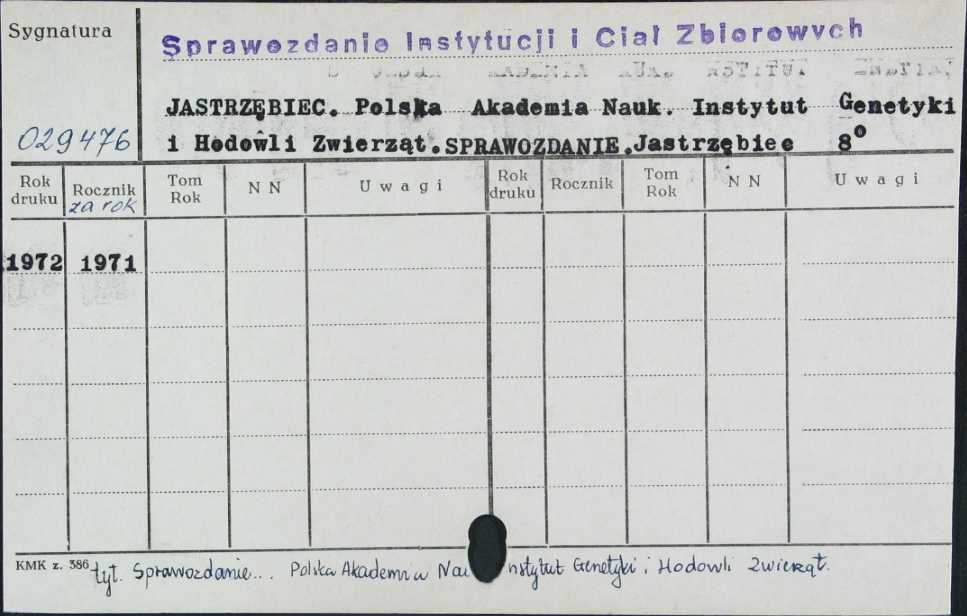 Sygnatura
Sprawozdanie Instytucji i Ciał Zbiorowych
JASTRZĘBIEC. Polska Akademia Nauk. Instytut Genetyki
029476 i Hodowli Zwierząt. SPRAWOZDANIE. Jastrzębiec 8°
Rok druku Rocznik za rok Tom Rok NN Uwagi Rok druku Rocznik Tom Rok NN Uwagi
1972 1971
KMK z. 386 tyt. Sprawozdanie... Polska Akademia Instytut Genetyki i Hodowli Zwierząt.